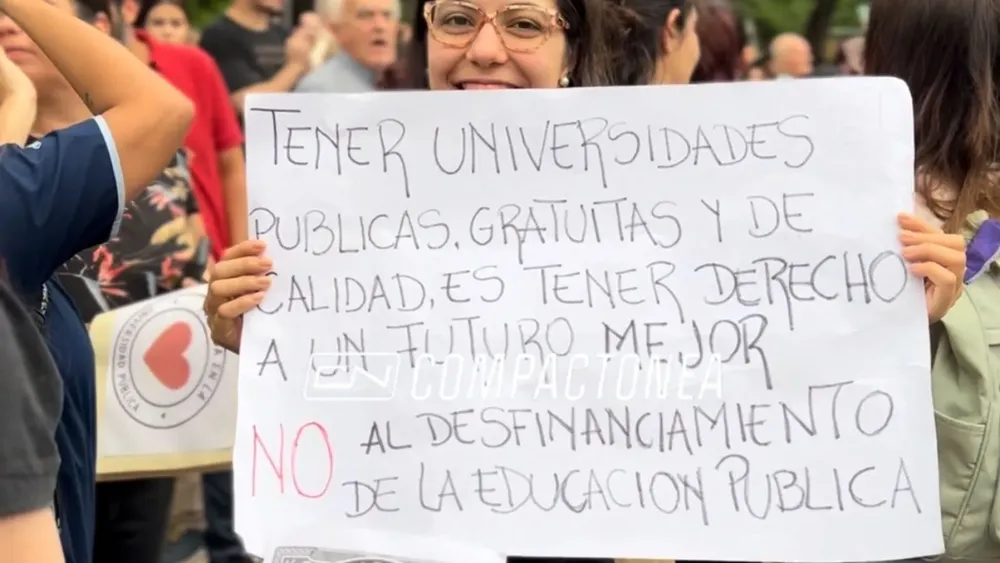 TENER UNIVERSIDADES
PUBLICAS, GRATUITAS Y DE
CALIDAD, ES TENER DERECHO
A UN FUTURO MEJOR
NO AL DESFINANCIAMIENTO
DE LA EDUCACION PUBLICA
EN COMPACTONEA
EN LA
UNIVERSIDAD PÚBLICA